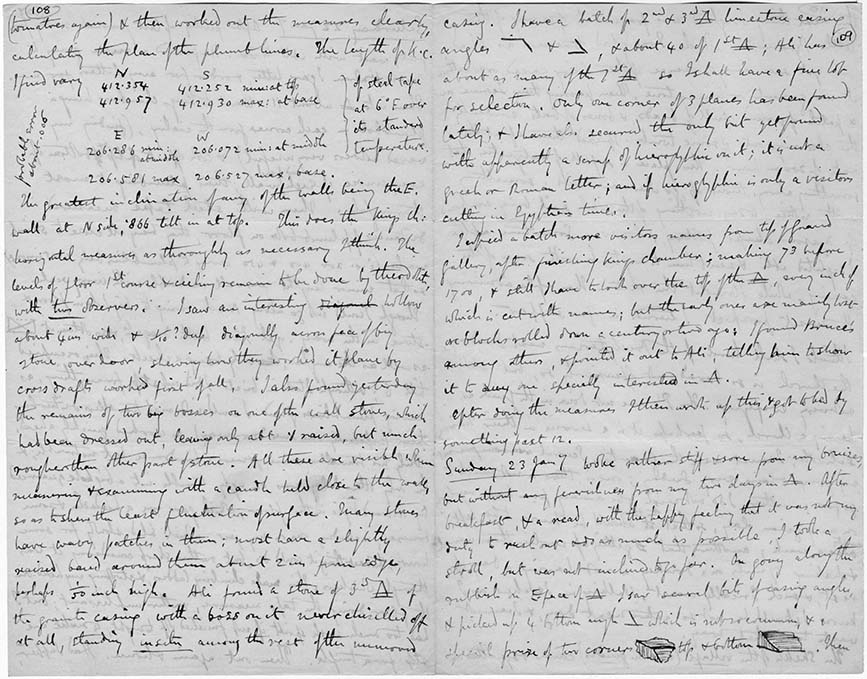 108
(tomatoes again) & then worked out the measures clearly,
calculating the plan of the plumb lines. The length of K.C.
I find vary N S
412·354 412·252 min: at top
412·957 412·930 max: at base
of steel tape
at 6° F over
its standard
temperature.
probable error
about ·006
E W
206·286 min: at middle 206·072 min: at middle
206·581 max 206·527 max, base.
The greatest inclination of any of the walls being the E.
wall at N side, ·866 tilt in at top. This does the Kings ch:
horizontal measures as thoroughly as necessary I think. The
levels of floor 1st course & ceiling remain to be done by theodolite,
with this observers. I saw an interesting hollow
about 4 ins wide & 1/10? deep diagonally across face of big
stone over door, shewing how they worked it plane by
cross drafts worked first of all. I also found yesterday
the remains of two big bosses on one of the wall stones, which
had been dressed out, leaving only abt raised, but much
rougher than other part of stone. All these are visible when
measuring & examining with a candle held close to the walls,
so as to shew the least fluctuation of surface. Many stones
have wavy patches in them; most have a slightly
raised band around them about 2 ins from edge
perhaps 1/50 inch high. Ali found a stone of 3rd △ of
the granite casing with a boss on it never chiselled off
at all, standing in situ among the rest of the unmoved
109
casing. I have a batch of 2nd & 3rd △ limestone casing
angles & , & about 40 of 1st △; Ali has
about as many of the 1st △ so I shall have a fine lot
for selection. Only one corner of 3 planes has been found
lately; & I have also secured the only bit yet found
with apparently a scrap of hieroglyphic on it; it is not a
greek or Roman letter; and if hieroglyphic is only a visitors
cutting in Egyptian times.
I copied a batch more visitors names from top of Grand
gallery, after finishing Kings chamber; making 73 before
1700, & still I have to look over the top of the △, every inch of
which is cut with names; but the early ones are mainly lost
on blocks rolled down a century or two ago; I found Bruce's
among others, & pointed it out to Ali, telling him to shew
it to any one specially interested in △.
After doing the measures I then work up this & got to bed by
something past 12.
Sunday 23 Jany woke rather stiff & sore from my bruises
but without any feverishness from my two days in △. After
breakfast & a read, with the happy feeling that it was not my
duty to rush out & do as much as possible, I took a
stroll, but was not inclined to go far. In going along the
rubbish in E face of △ I saw several bits of casing angle,
& picked up 4 bottom angle which is not so common & a
special prize of two corners top & bottom . Then